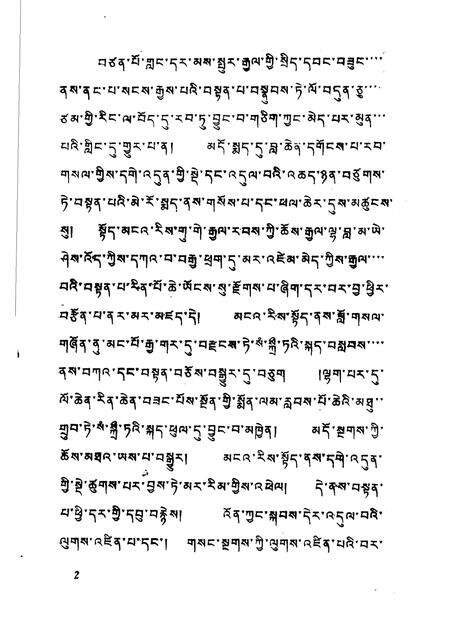 བཙན་པོ་གླང་དར་མས་སྤུར་རྒྱལ་གྱི་སྲིད་དབང་བཟུང་····
ནས་ནང་པ་སངས་རྒྱས་པའི་བསྟན་པ་བསྣུབས་ཏེ་ལོ་བདུན་ཅུ་···
ཙམ་གྱི་རིང་ལ་བོད་དུ་རབ་ཏུ་བྱུང་བ་གཅིག་ཀྱང་མེད་པར་མུན་···
པའི་གླིང་དུ་གྱུར་པ་ན། མདོ་སྨད་དུ་བླ་ཆེན་དགོངས་པ་རབ་
གསལ་གྱིས་དགེ་འདུན་གྱི་སྡེ་དང་འདུལ་བའི་འཆད་ཉན་བཙུགས་
ཏེ་བསྟན་པའི་མེ་རོ་སྨད་ནས་གསོས་པ་དང་ཕལ་ཆེར་དུས་མཚུངས་
སུ། སྟོད་མངའ་རིས་གུ་གེ་རྒྱལ་རབས་ཀྱི་ཆོས་རྒྱལ་ལྷ་བླ་མ་ཡེ་
ཤེས་འོད་ཀྱིས་དཀའ་བ་བརྒྱ་ཕྲག་དུ་མར་འཛེམ་མེད་ཀྱིས་རྒྱལ་···
བའི་བསྟན་པ་རིན་པོ་ཆེ་ཡོངས་སུ་རྫོགས་པ་ཞིག་དར་བར་བྱ་ཕྱིར་
བརྩོན་པ་ན་ར་མར་མཛད་དེ། མངའ་རིས་སྟོད་ནས་བློ་གསལ་
གཞོན་ནུ་མང་པོ་རྒྱ་གར་དུ་བརྫངས་ཏེ་སཾ་ཀྲྀ་ཏའི་སྐད་བསླབས་···
ནས་བཀའ་དང་བསྟན་བཅོས་བསྒྱུར་དུ་བཅུག །ལྷག་པར་དུ་
ལོ་ཆེན་རིན་ཆེན་བཟང་པོས་སྔོན་གྱི་སྨོན་ལམ་རླབས་པོ་ཆེའི་མཐུ་··
གྲུབ་ཏེ་སཾ་ཀྲྀ་ཏའི་སྐད་ཕུལ་དུ་བྱུང་བ་མཁྱེན། མདོ་སྔགས་ཀྱི་
ཆོས་མཐའ་ཡས་པ་བསྒྱུར། མངའ་རིས་སྟོད་ནས་དགེ་འདུན་
གྱི་སྡེ་ཚུགས་པར་བྱས་ཏེ་མར་རིམ་གྱིས་འཕེལ། དེ་ནས་བསྟན་
པ་ཕྱི་དར་གྱི་དབུ་བརྙེས། འོན་ཀྱང་སྐབས་དེར་འདུལ་བའི་
ལུགས་འཛིན་པ་དང་། གསང་སྔགས་ཀྱི་ལུགས་འཛིན་པའི་བར་
2